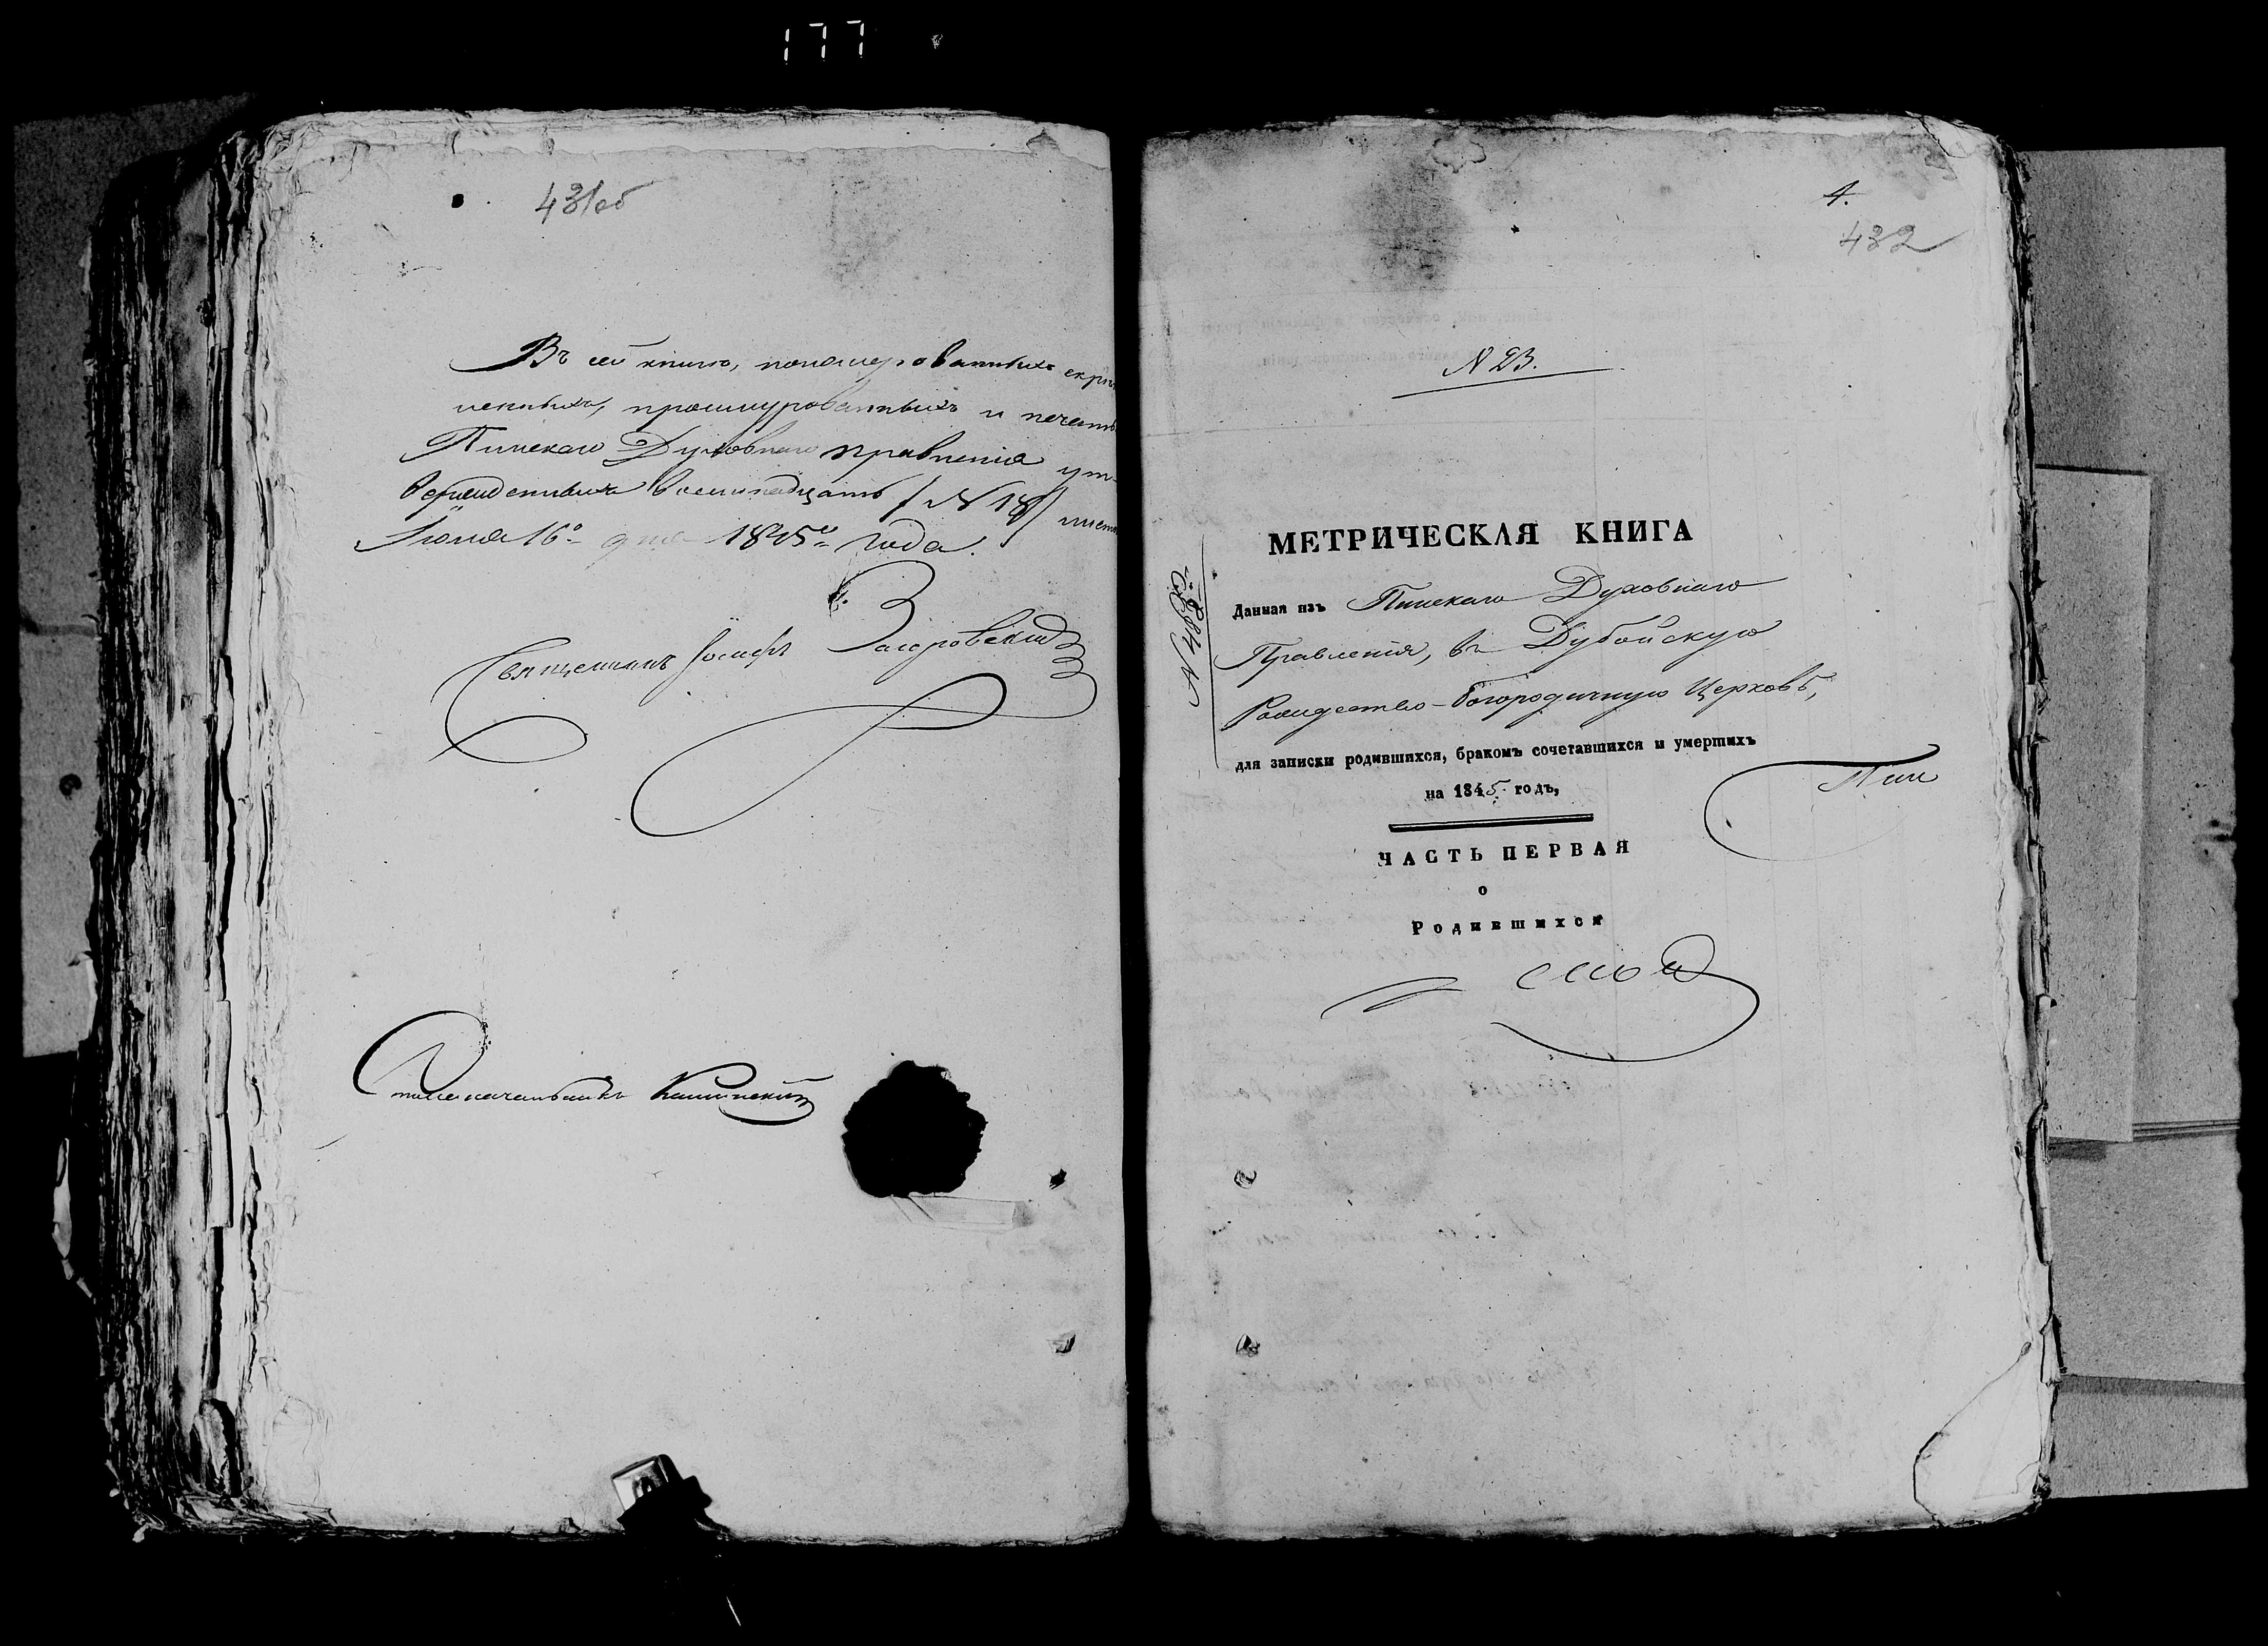 177
431об
Въ сей книгѣ, пономерованныхъ скрѣ
пленныхъ, прошнурованныхъ и печатью
Пинскаго Духовнаго правленія ут-
вержденныхъ восемнадцать / N 18 / листовъ
Іюня 16º дня 1845º года.
Священникъ Іосифъ
Столоначальникъ
1.
432
N 23.
МЕТРИЧЕСКАЯ КНИГА
Данная изъ Пинскаго Духовнаго
Правленія, въ Дубойскую
Рождество-Богородичную Церковь,
для записки родившихся, бракомъ сочетавшихся и умершихъ
на 1845 годъ,
Пин
ЧАСТЬ ПЕРВАЯ
о
Родившихся
ской